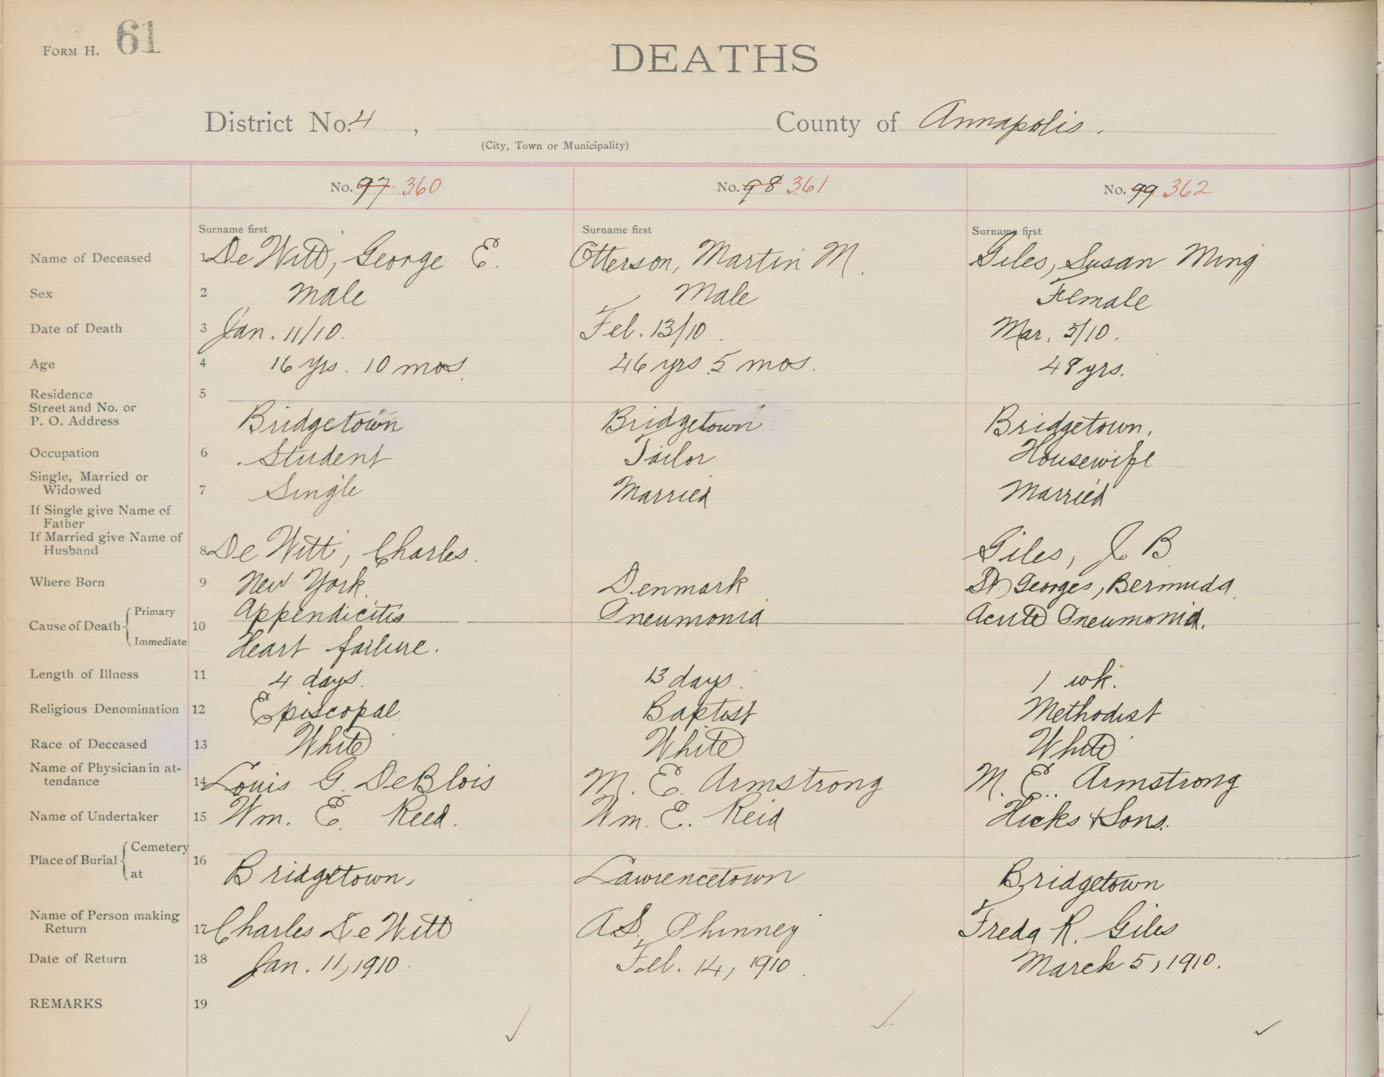 Form H. 61
DEATHS
District No. 4 , County of Annapolis.
(City, Town or Municipality)
No. 97 360 No. 98 361 No. 99 362
Surname first Surname first Surname first
Name of Deceased 1 De Witt, George E. Otterson, Martin M. Giles, Susan Ming
Sex 2 Male Male Female
Date of Death 3 Jan. 11/10. Feb. 13/10. Mar. 5/10.
Age 4 16 yrs. 10 mos. 46 yrs 5 mos. 48 yrs.
Residence 5
Street and No. or
P. O. Address Bridgetown Bridgetown Bridgetown,
Occupation 6 Student Tailor Housewife
Single, Married or
Widowed 7 Single Married Married
If Single give Name of
Father
If Married give Name of
Husband 8 De Witt, Charles. Giles, J B
Where Born 9 New York. Denmark St. Georges, Bermuda.
Cause of Death Primary 10 Appendicitis Pneumonia Acute Pneumonia.
Immediate Heart failure.
Length of Illness 11 4 days. 13 days. 1 wk.
Religious Denomination 12 Episcopal Baptist Methodist
Race of Deceased 13 White White White
Name of Physician in at-
tendance 14 Louis G. DeBlois M. E. Armstrong M. E. Armstrong
Name of Undertaker 15 Wm. E. Reed. Wm. E. Reid Hicks & Sons.
Place of Burial Cemetery 16
at Bridgetown. Lawrencetown Bridgetown
Name of Person making
Return 17 Charles De Witt A S. Phinney Freda R. Giles
Date of Return 18 Jan. 11, 1910. Feb. 14, 1910. March 5, 1910.
REMARKS 19